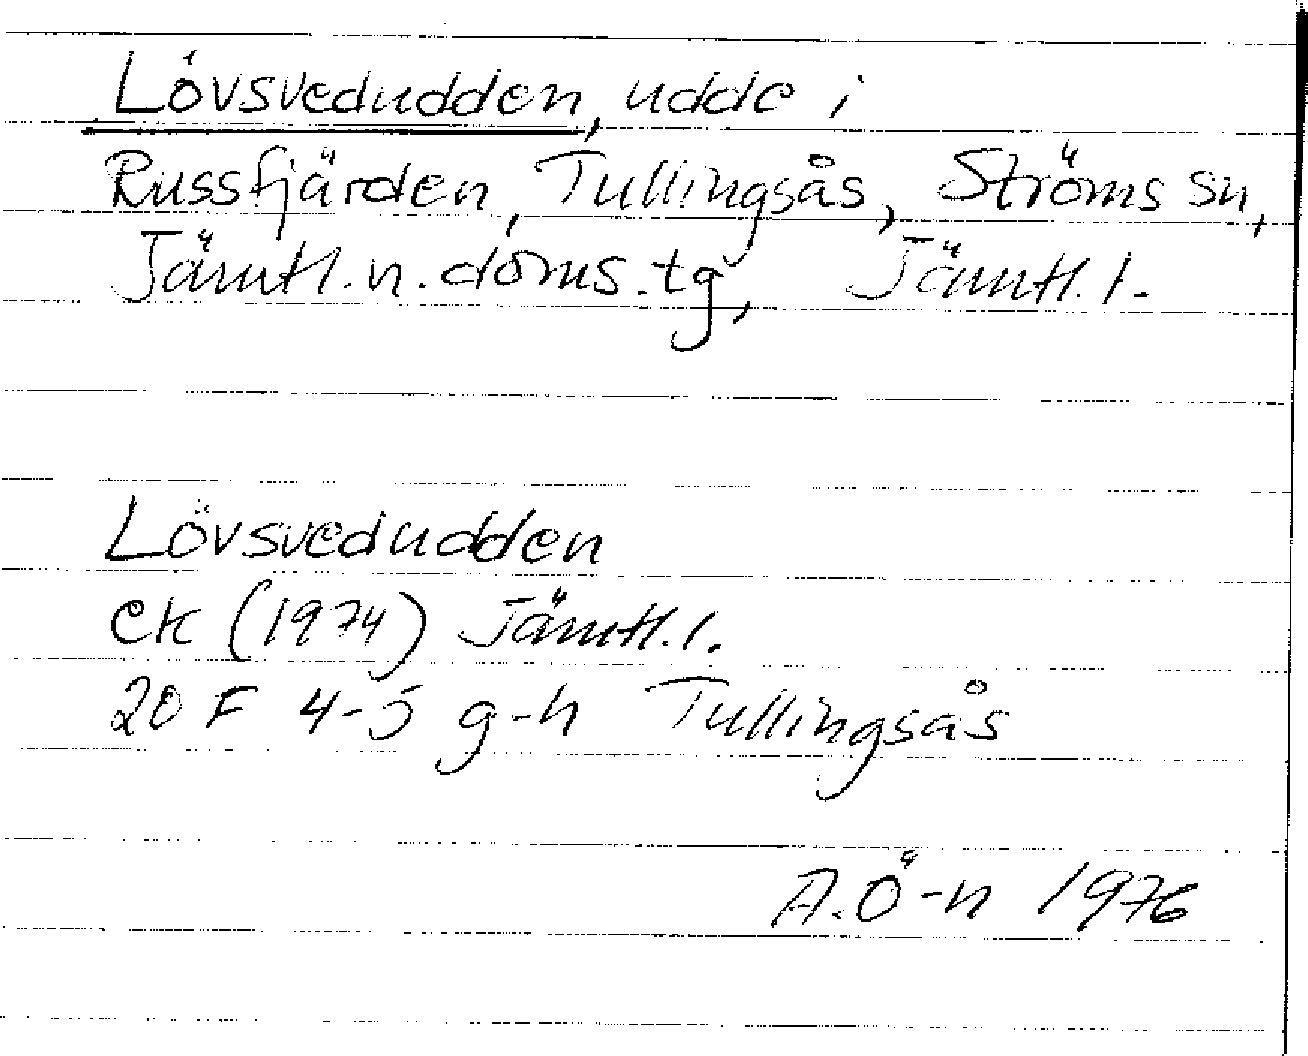 Lövsvedudden, udde i
Russfjärden, Tullingsås, Ströms sn,
Jämtl. n. doms. tg, Jämtl. l.
Lövsvedudden
ek (1974) Jämtl. l.
20 F 4-5 g-h Tullingsås
A. Ö-n 1976